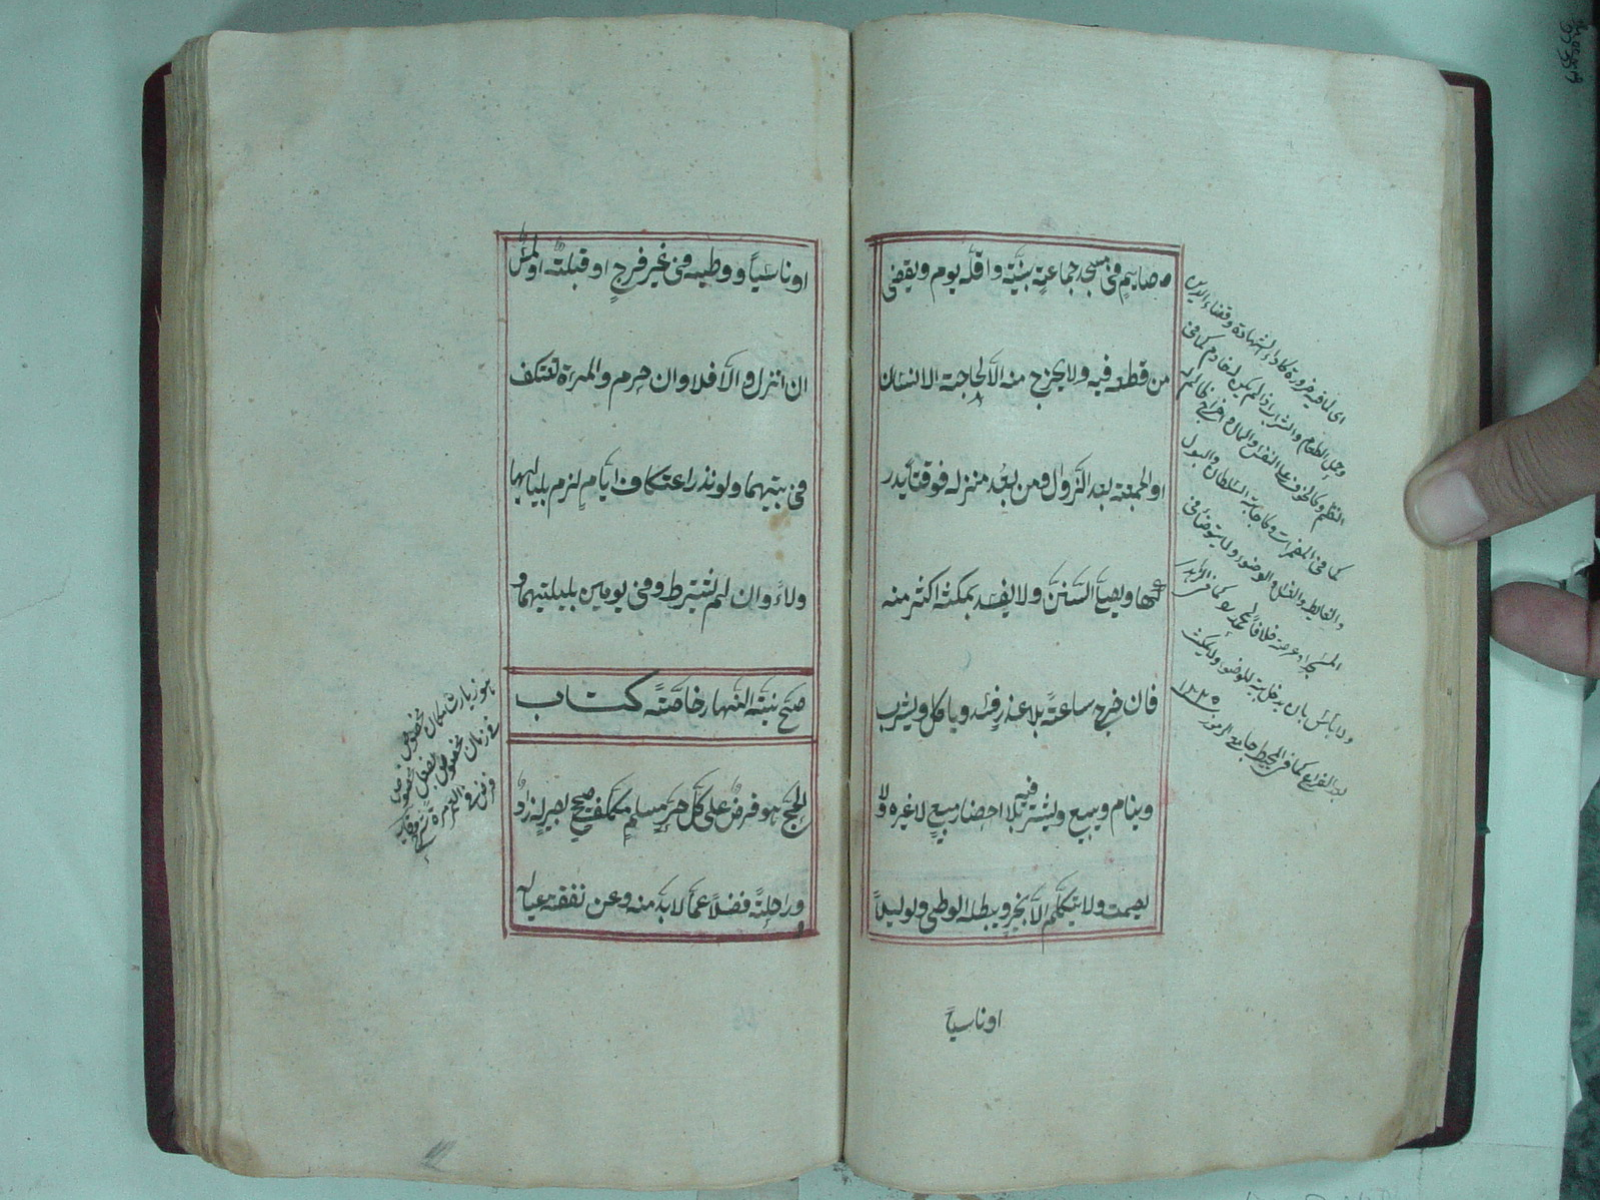 صايم في مسجد جماعة بنيّة واقله يوم ويقضى
من قطعه فيه ولا يخرج منه الّا لحاجة الانسان
او الجمعة بعد الزّوال ومن بعُد منزله فوقتا يدر
كها ويصلّى السّنن ولا يفسد بمكثه اكثر منه
فان خرج ساعةً بلا عذرٍ فسد وياكل ويشرب
وينام ويبيع ويشترى فيه بلا احضار مبيعٍ لا غيره ولا
يصمت ولا يتكلّم الّا بخيرٍ ويبطله الوطى ولو ليلاً
اوناسياً
اى لما فيه ضرورة كاداء الشهادة وقضاء الدين
وحمل الطعام والشراب اذا لم يكن له خادم كما فى
النظم وكالخوف على النفس والمال
كما فى المضمرات وكاحابة السلطان والبول
والغايط والغسل والوضوء ولا يتوضأ فى
المسجد او عرصته خلافا لمحمد
ولا بأس بان يدخل بيته للوضوء ولا يمكث
بعد الفراغ كما فى المحيط جامع الرموز
اوناسياً ووطيه في غير فرجٍ او قبلته او لمس
ان انزل والّا فلا وان حرم والمرءة تعتكف
في بيتها ولو نذر اعتكاف ايّامٍ لزم بلياليها
ولاءً وان لم يشترط وفي يومين بليلتيهما و
صحّ نيّته النّهار خاصّةً كتاب
الحجّ هو فرض على كلّ حرٍّ مسلمٍ مكلّف صحيح بصير له زاد
وراحلة فضلاً عمّا لا بدّ منه وعن نفقة عياله
هو زيارة مكان مخصوص
فى زمان مخصوص بفعل مخصوص